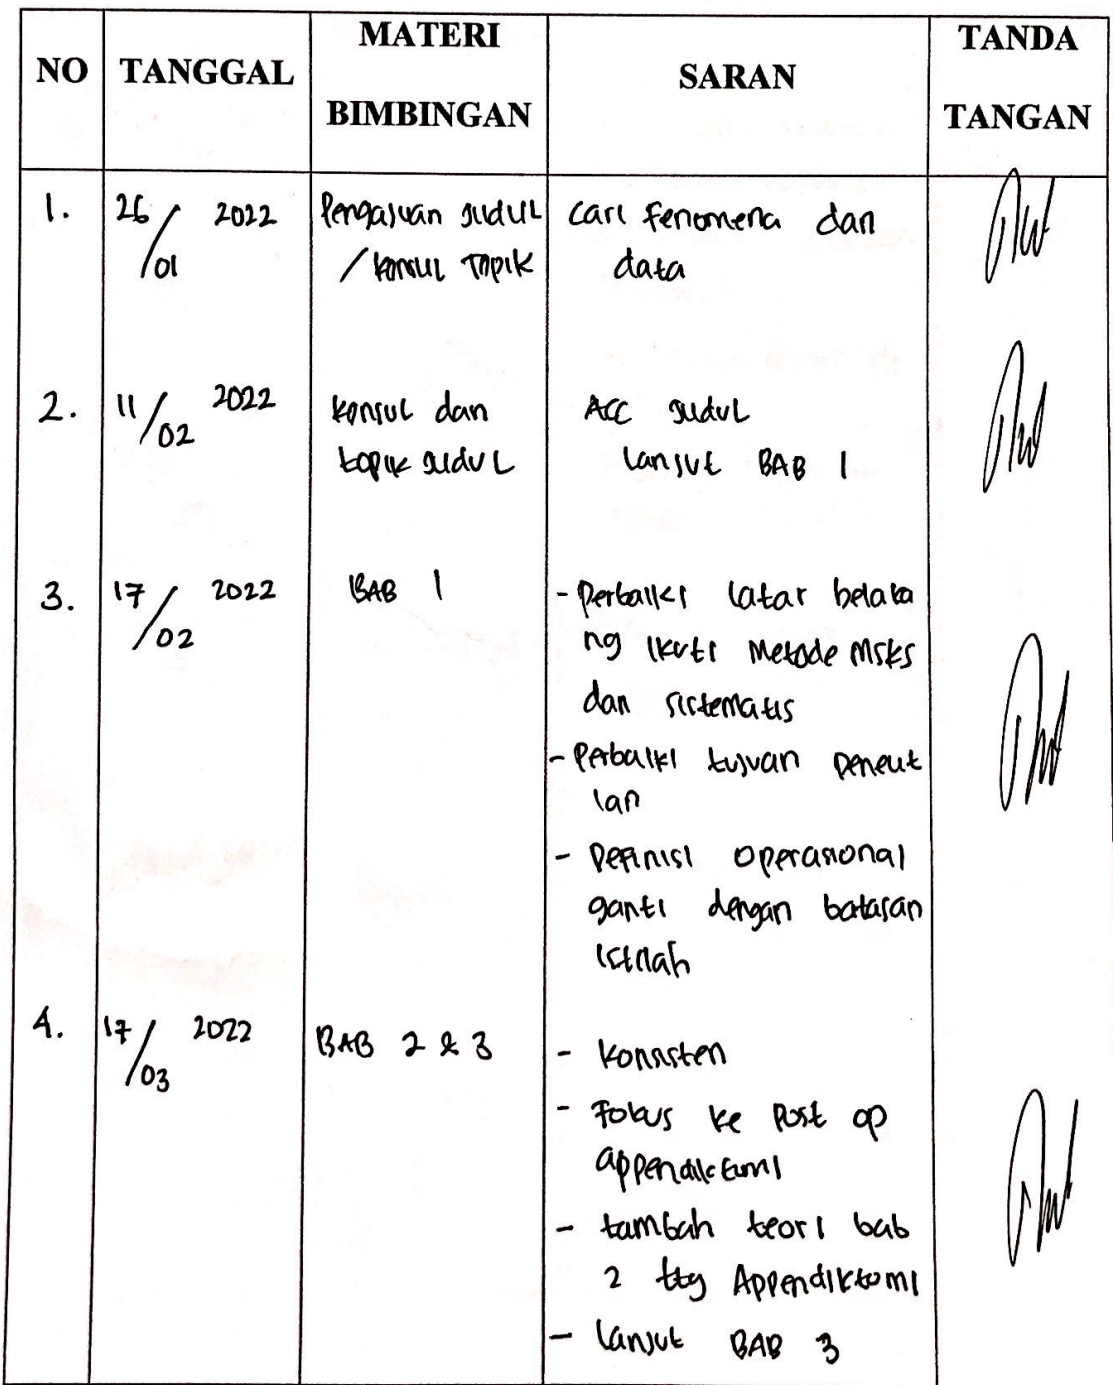 NO TANGGAL MATERI BIMBINGAN SARAN TANDA TANGAN
1. 26/01 2022 Pengajuan judul Cari fenomena dan
/ konsul Topik data
2. 11/02 2022 konsul dan ACC judul
topik judul lanjut BAB 1
3. 17/02 2022 BAB 1 - Perbaiki latar belaka
ng ikuti Metode MSKS
dan sistematis
- Perbaiki tujuan penelit
ian
- Definisi operasional
ganti dengan batasan
istilah
4. 17/03 2022 BAB 2 & 3 - Konsisten
- Fokus ke Post op
appendiktomi
- tambah teori bab
2 ttg Appendiktomi
- lanjut BAB 3